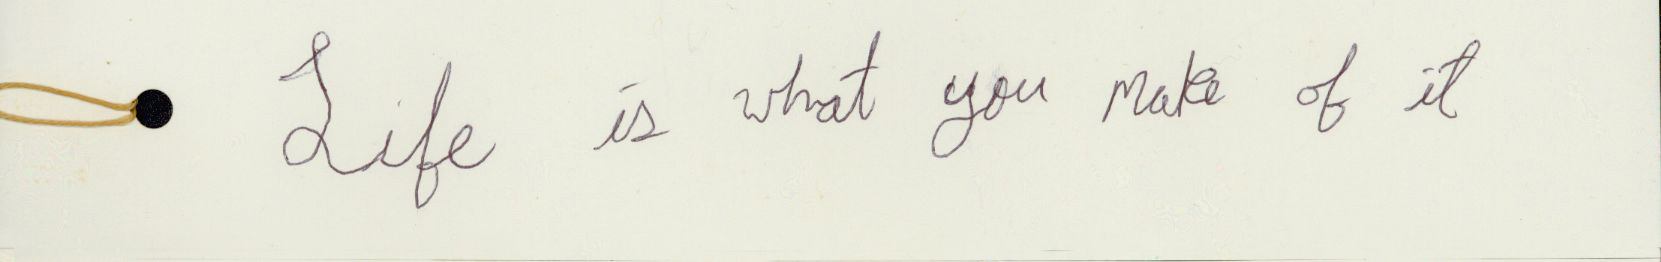 Life is what you make of it